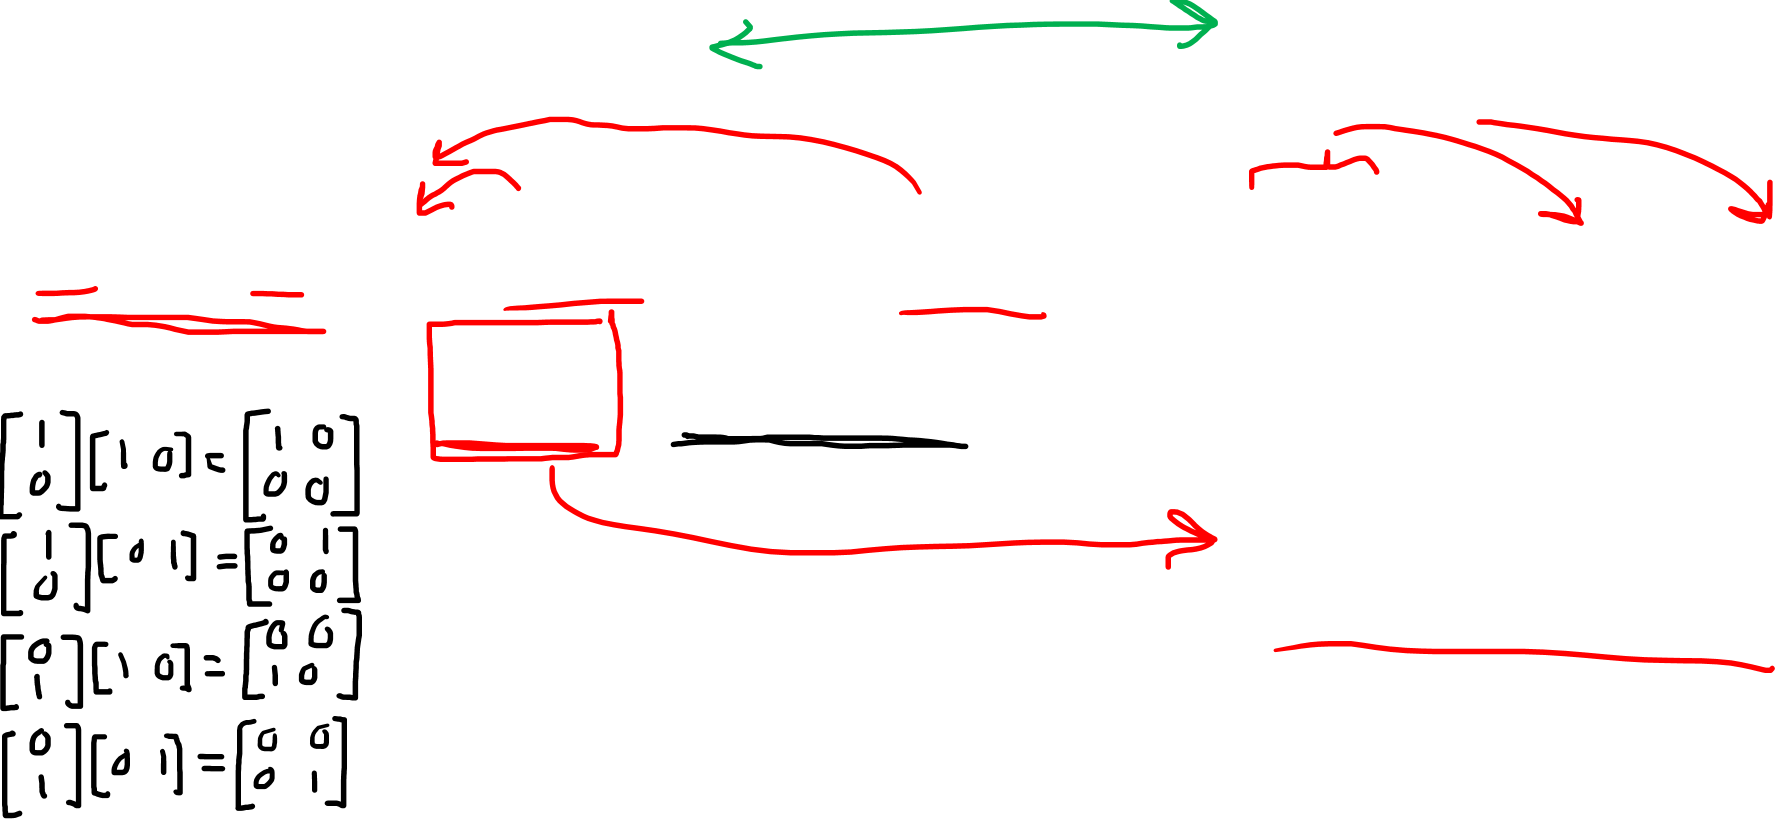 [1 0] [1 0] = [1 0 0 0]
[1 0] [0 1] = [0 1 0 0]
[0 1] [1 0] = [0 0 1 0]
[0 1] [0 1] = [0 0 0 1]